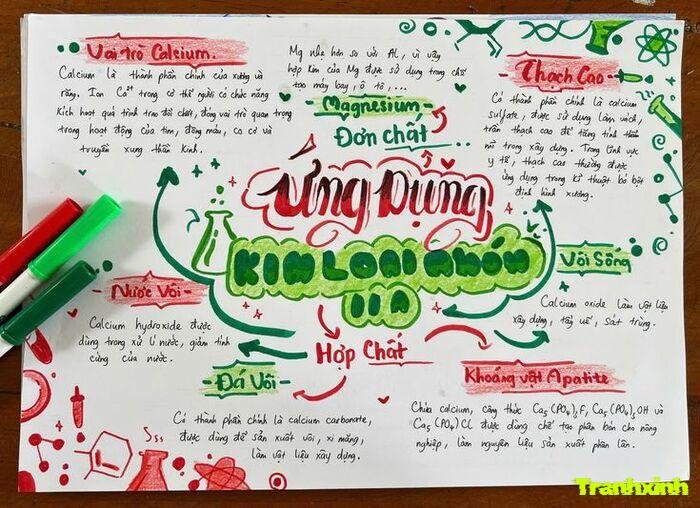 Vai trò Calcium.
Calcium là thành phần chính của xương và
răng. Ion Ca²⁺ trong cơ thể người có chức năng
kích hoạt quá trình trao đổi chất, đóng vai trò quan trọng
trong hoạt động của tim, đông máu, co cơ và
truyền xung thần kinh.
Mg nhẹ hơn so với Al, vì vậy
hợp kim của Mg được sử dụng trong chế
tạo máy bay, ô tô, ...
- Magnesium -
Đơn chất
- Thạch Cao -
Có thành phần chính là calcium
sulfate, được sử dụng làm vách,
trần thạch cao để tăng tính thẩm
mĩ trong xây dựng. Trong lĩnh vực
y tế, thạch cao thường được
ứng dụng trong kĩ thuật bó bột
định hình xương.
Ứng Dụng
KIM LOẠI NHÓM
IIA
- Nước Vôi -
Calcium hydroxide được
dùng trong xử lí nước, giảm tính
cứng của nước.
Vôi Sống
Calcium oxide làm vật liệu
xây dựng, tẩy uế, sát trùng.
Hợp Chất
- Đá Vôi -
Có thành phần chính là calcium carbonate,
được dùng để sản xuất vôi, xi măng,
làm vật liệu xây dựng.
Khoáng vật Apatite
Chứa calcium, công thức Ca₅(PO₄)₃F, Ca₅(PO₄)₃OH và
Ca₅(PO₄)Cl được dùng chế tạo phân bón cho nông
nghiệp, làm nguyên liệu sản xuất phân lân.
Sss
Tranhxinh